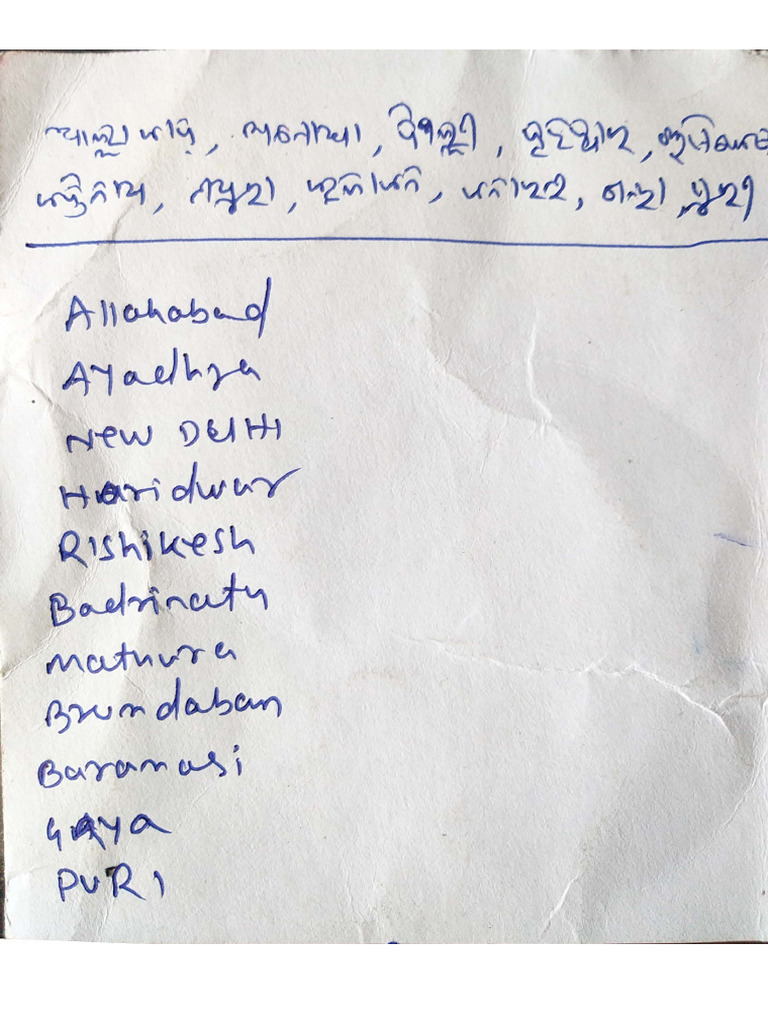 ଆଲ୍ଲାବାଦ୍, ଅଯୋଧ୍ୟା, ଦିଲ୍ଲୀ, ହରିଦ୍ୱାର,
ବଦ୍ରିନାଥ, ମଥୁରା, ପୁରୀ
Allahabad
Ayodhya
New DElHI
Haridwar
RIShikesh
Badrinath
Mathura
Brundaban
Baranasi
GAya
PURI